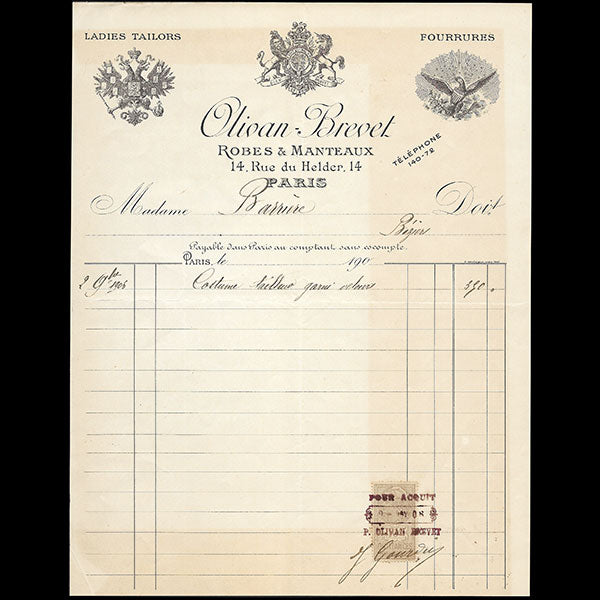 LADIES TAILORS
FOURRURES
Olivan-Brevet
ROBES & MANTEAUX
14, Rue du Helder, 14
PARIS
TÉLÉPHONE
140-72
Madame Barrière Doit
Payable dans Paris au comptant sans escompte.
Paris, le 190
2 9bre 1908 Costume tailleur garni velours
POUR ACQUIT
P. OLIVAN BREVET